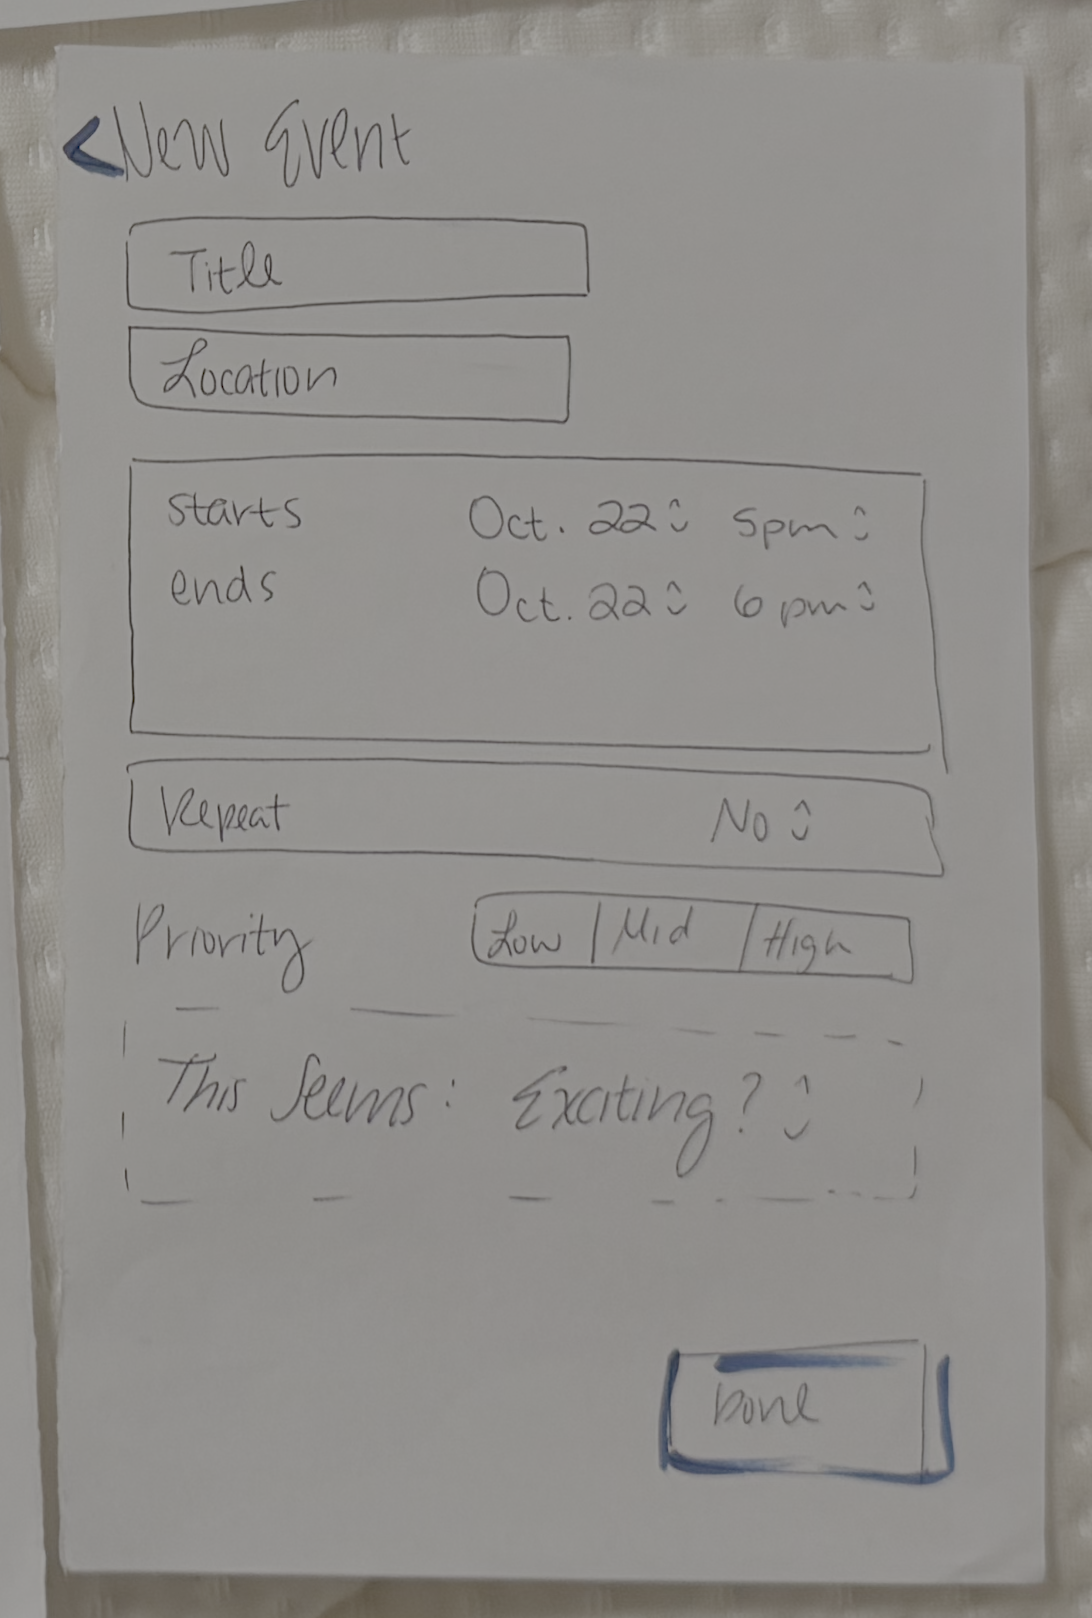 < New Event
Title
Location
starts Oct. 22 5pm
ends Oct. 22 6pm
Repeat No
Priority Low | Mid | High
This Seems: Exciting?
Done